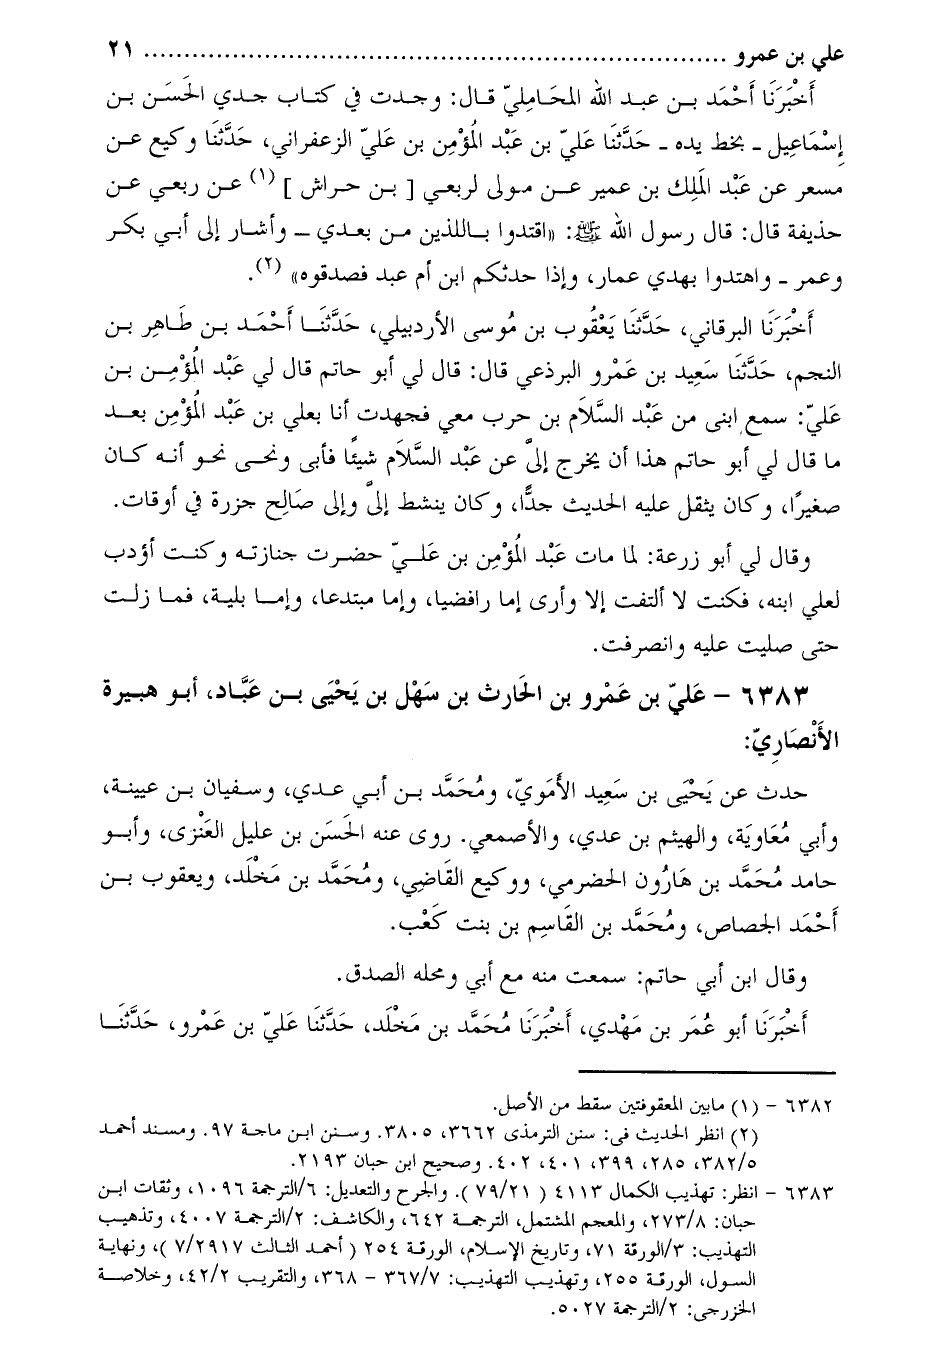 علي بن عمرو ........................................................................ ٢١
أَخْبَرَنَا أَحْمَد بن عبد الله المحَامليّ قال: وجدت في كتاب جدي الحَسَن بن
إسْمَاعِيل ـ بخط يده ـ حَدَّثَنَا عَليّ بن عَبْد المُؤْمِن بن عَليّ الزعفراني، حَدَّثَنَا وكيع عن
مسعر عن عَبْد المَلِك بن عمير عن مولى لربعي [ بن حراش ] (١) عن ربعي عن
حذيفة قال: قال رسول الله ﷺ: «اقتدوا باللذين من بعدي ــ وأشار إلى أبي بكر
وعمر ـ واهتدوا بهدي عمار، وإذا حدثكم ابن أم عبد فصدقوه» (٢).
أَخْبَرَنَا البرقاني، حَدَّثَنَا يَعْقُوب بن مُوسى الأردبيلي، حَدَّثَنَا أَحْمَد بن طَاهِر بن
النجم، حَدَّثَنَا سَعِيد بن عَمْرو البرذعي قال: قال لي أبو حاتم قال لي عَبْد المُؤْمِن بن
عَليّ: سمع ابنى من عَبْد السَّلام بن حرب معي فجهدت أنا بعلي بن عَبْد المُؤْمِن بعد
ما قال لي أبو حاتم هذا أن يخرج إليَّ عن عَبْد السَّلام شيئًا فأبى ونحى نحو أنه كان
صغيرًا، وكان يثقل عليه الحديث جدًّا، وكان ينشط إليَّ وإلى صَالِح جزرة في أوقات.
وقال لي أبو زرعة: لما مات عَبْد المُؤْمِن بن عَليّ حضرت جنازته وكنت أؤدب
لعلي ابنه، فكنت لا ألتفت إلا وأرى إما رافضيا، وإما مبتدعا، وإما بلية، فما زلت
حتى صليت عليه وانصرفت.
٦٣٨٣ – عَليّ بن عَمْرو بن الحَارث بن سَهْل بن يَحْيَى بن عَبَّاد، أبو هبيرة
الأَنْصَارِيّ:
حدث عن يَحْيَى بن سَعِيد الأَمَويّ، ومُحَمَّد بن أبي عدي، وسفيان بن عيينة،
وأبي مُعَاوِيَة، والهيثم بن عدي، والأصمعي. روى عنه الحَسَن بن عليل العَنْزى، وأبو
حامد مُحَمَّد بن هَارُون الحضرمي، ووكيع القَاضِي، ومُحَمَّد بن مَخْلَد، ويعقوب بن
أَحْمَد الجصاص، ومُحَمَّد بن القَاسِم بن بنت كَعْب.
وقال ابن أبي حاتم: سمعت منه مع أبي ومحله الصدق.
أَخْبَرَنَا أبو عُمَر بن مَهْدي، أَخْبَرَنَا مُحَمَّد بن مَخْلَد، حَدَّثَنَا عَليّ بن عَمْرو، حَدَّثَنَا
٦٣٨٢ – (١) مابين المعقوفتين سقط من الأصل.
(٢) انظر الحديث فى: سنن الترمذى ٣٦٦٢، ٣٨٠٥. وسنن ابن ماجة ٩٧. ومسند أحمد
٣٨٢/٥، ٢٨٥، ٣٩٩، ٤٠١، ٤٠٢. وصحيح ابن حبان ٢١٩٣.
٦٣٨٣ – انظر: تهذيب الكمال ٤١١٣ ( ٧٩/٢١ ). والجرح والتعديل: ٦/الترجمة ١٠٩٦، وثقات ابن
حبان: ٢٧٣/٨، والمعجم المشتمل، الترجمة ٦٤٢، والكاشف: ٢/الترجمة ٤٠٠٧، وتذهيب
التهذيب: ٣/الورقة ٧١، وتاريخ الإسلام، الورقة ٢٥٤ ( أحمد الثالث ٧/٢٩١٧ )، ونهاية
السول، الورقة ٢٥٥، وتهذيب التهذيب: ٣٦٧/٧ – ٣٦٨، والتقريب ٤٢/٢، وخلاصة
الخزرجى: ٢/الترجمة ٥٠٢٧.